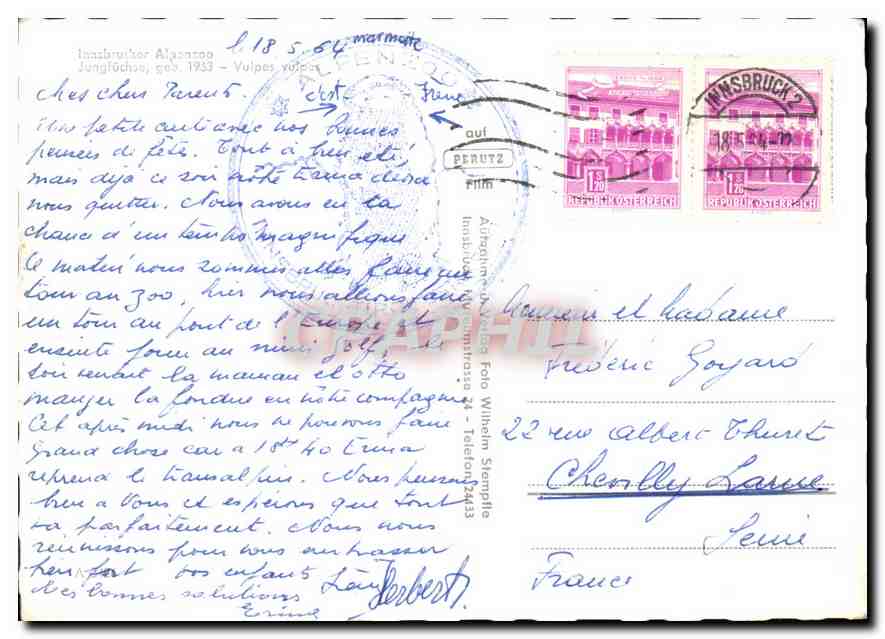 Innsbrucker Alpenzoo
Jungfüchse, geb. 1953 - Vulpes vulpes
le 18.5.64
marmotte
ALPENZOO
Mes chers Parents.
c'est
Une petite carte avec nos bonnes
pensées de fête. Tout à bien été,
mais déjà ce soir nôtre Erma devra
nous quitter. Nous avons eu la
chance d'un temps magnifique.
Ce matin nous sommes allés faire un
tour au zoo, hier nous allions faire
un tour au pont de l'Europe et
ensuite jouer au mini golf, le
soir venait la maman et Otto
manger la fondue en nôtre compagnie
Cet après midi nous ne pouvons faire
grand chose car a 18h 40 Erma
reprend le transalpin. Nous pensons
bien a Vous et espérons que tout
va parfaitement. Nous nous
réunissons pour vous embrasser
bien fort vos enfants
Herbert.
Mes bonnes salutations
auf
PERUTZ
Film
Aufnahme u. Verlag Foto Wilhelm Stempfle
Innsbruck, 24 - Telefon 24433
INNSBRUCK 2
18.5.64
1 S 20
REPUBLIK ÖSTERREICH
1 S 20
REPUBLIK ÖSTERREICH
Monsieur et Madame
Frédéric Goyard
22 rue Albert Thuret
Chevilly Larue
Seine
France
CPAPHIL